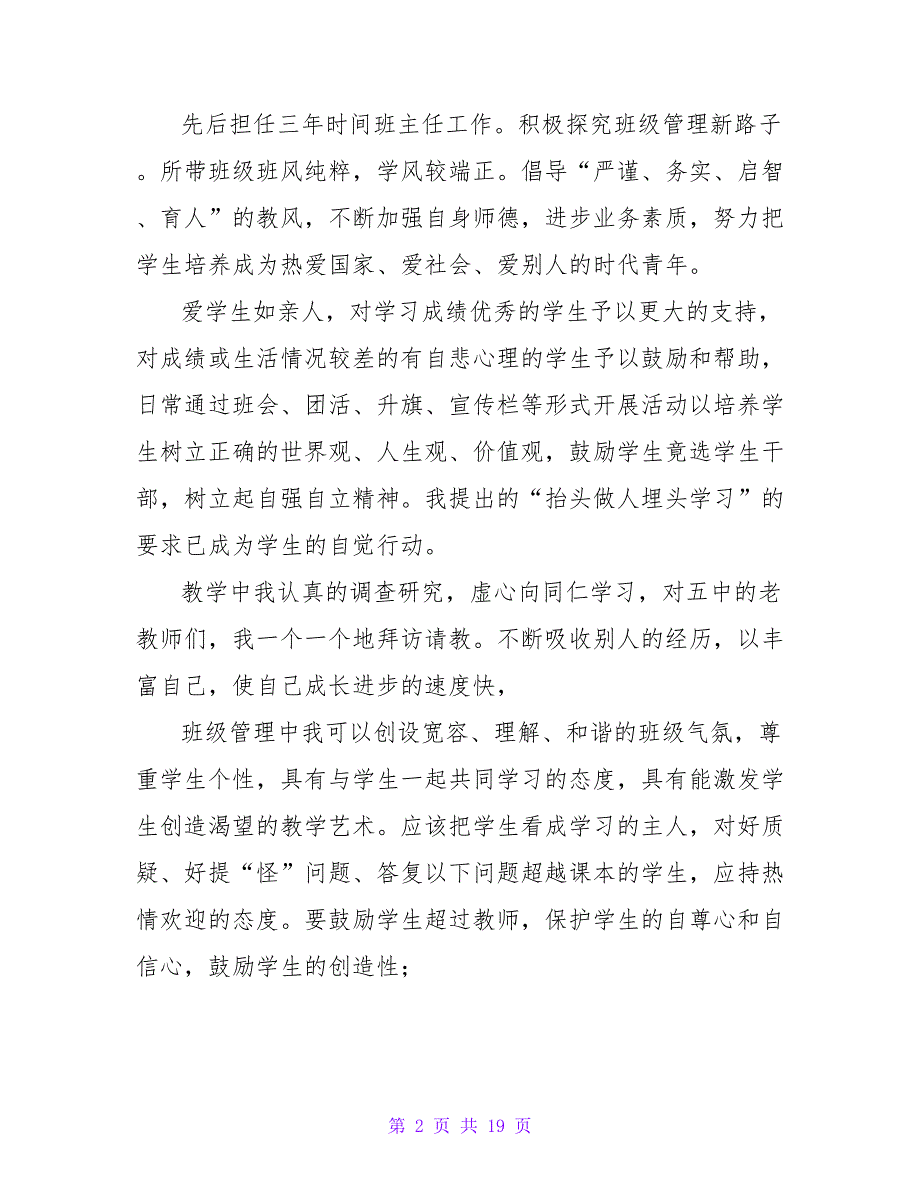 先后担任三年时间班主任工作。积极探究班级管理新路子
。所带班级班风纯粹，学风较端正。倡导“严谨、务实、启智
、育人”的教风，不断加强自身师德，进步业务素质，努力把
学生培养成为热爱国家、爱社会、爱别人的时代青年。
爱学生如亲人，对学习成绩优秀的学生予以更大的支持，
对成绩或生活情况较差的有自悲心理的学生予以鼓励和帮助，
日常通过班会、团活、升旗、宣传栏等形式开展活动以培养学
生树立正确的世界观、人生观、价值观，鼓励学生竟选学生干
部，树立起自强自立精神。我提出的“抬头做人埋头学习”的
要求已成为学生的自觉行动。
教学中我认真的调查研究，虚心向同仁学习，对五中的老
教师们，我一个一个地拜访请教。不断吸收别人的经历，以丰
富自己，使自己成长进步的速度快，
班级管理中我可以创设宽容、理解、和谐的班级气氛，尊
重学生个性，具有与学生一起共同学习的态度，具有能激发学
生创造渴望的教学艺术。应该把学生看成学习的主人，对好质
疑、好提“怪”问题、答复以下问题超越课本的学生，应持热
情欢迎的态度。要鼓励学生超过教师，保护学生的自尊心和自
信心，鼓励学生的创造性；
第 2 页 共 19 页